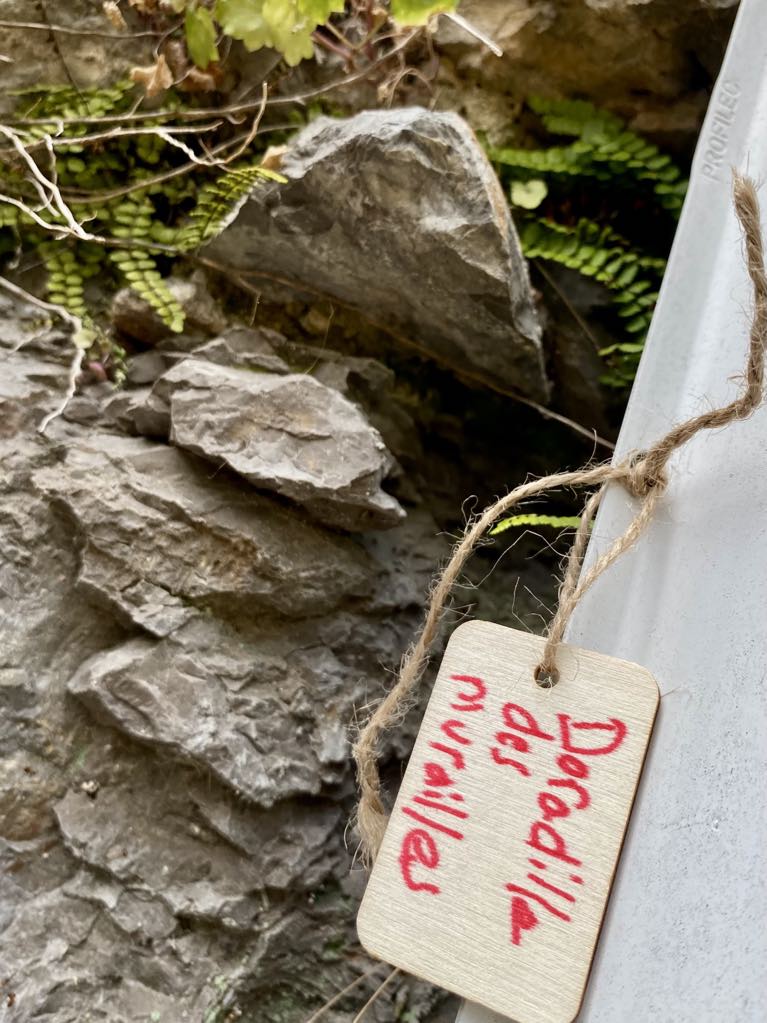 PROFILEO
Doradilla
des
murailles